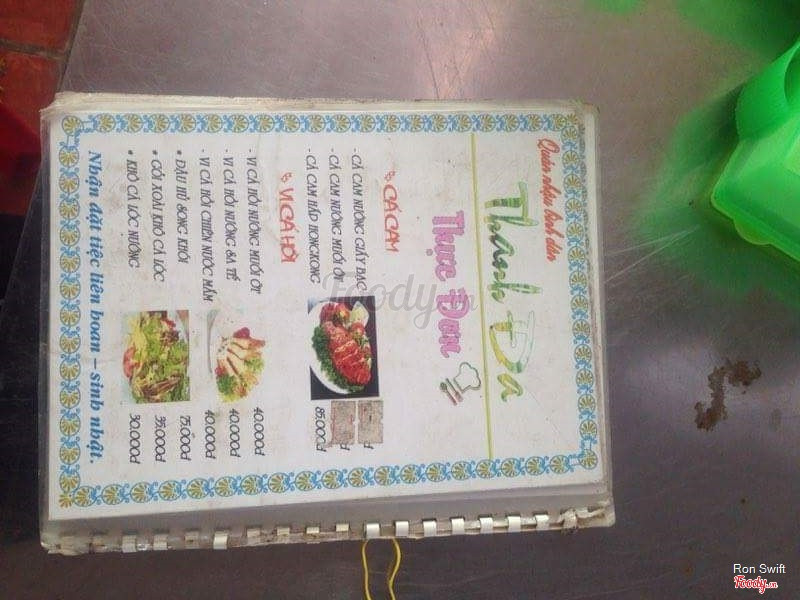 Quán nhậu bình dân
Thanh Đa
Thực Đơn
CÁ CAM
- CÁ CAM NƯỚNG GIẤY BẠC đ
- CÁ CAM NƯỚNG MUỐI ỚT đ
- CÁ CAM HẤP HONGKONG 85.000đ
VI CÁ HỒI
- VI CÁ HỒI NƯỚNG MUỐI ỚT 40.000đ
- VI CÁ HỒI NƯỚNG SA TẾ 40.000đ
- VI CÁ HỒI CHIÊN NƯỚC MẮM 40.000đ
• ĐẬU HŨ SONG KHÓI 75.000đ
• GỎI XOÀI KHÔ CÁ LÓC 55.000đ
• KHÔ CÁ LÓC NƯỚNG 50.000đ
Nhận đặt tiệc liên hoan - sinh nhật.
Foody.vn
Ron Swift
Foody.vn